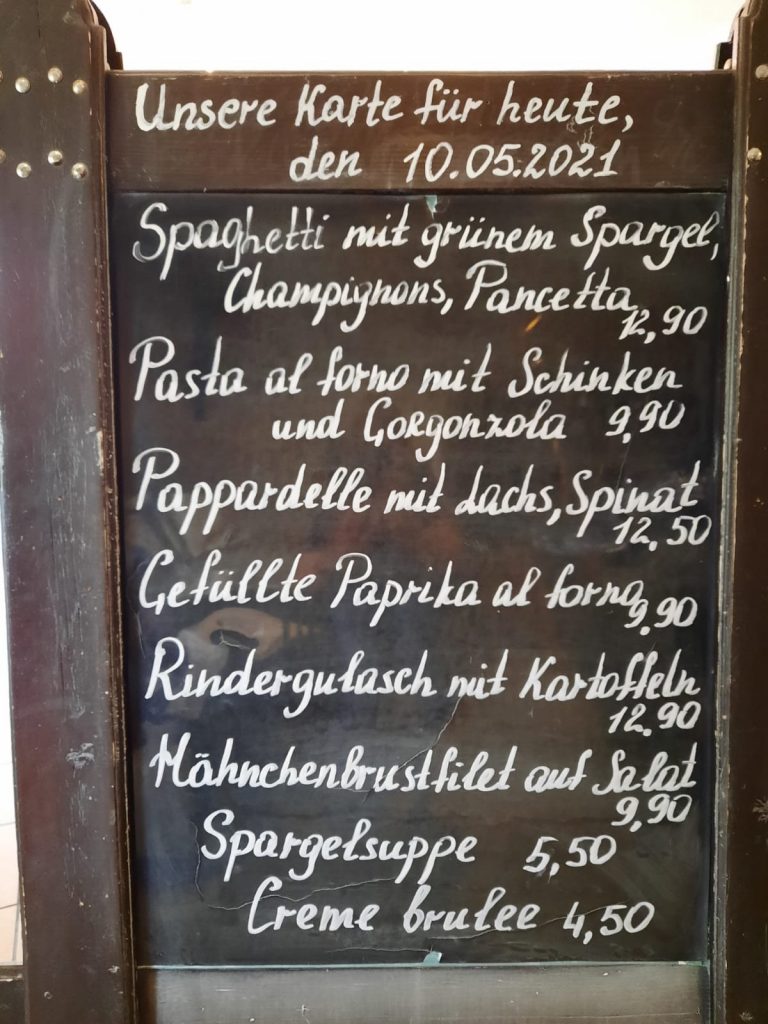 Unsere Karte für heute,
den 10.05.2021
Spaghetti mit grünem Spargel,
Champignons, Pancetta
12,90
Pasta al forno mit Schinken
und Gorgonzola 9,90
Pappardelle mit Lachs, Spinat
12.50
Gefüllte Paprika al forno
9.90
Rindergulasch mit Kartoffeln
12.90
Hähnchenbrustfilet auf Salat
9,90
Spargelsuppe 5,50
Creme brulee 4,50